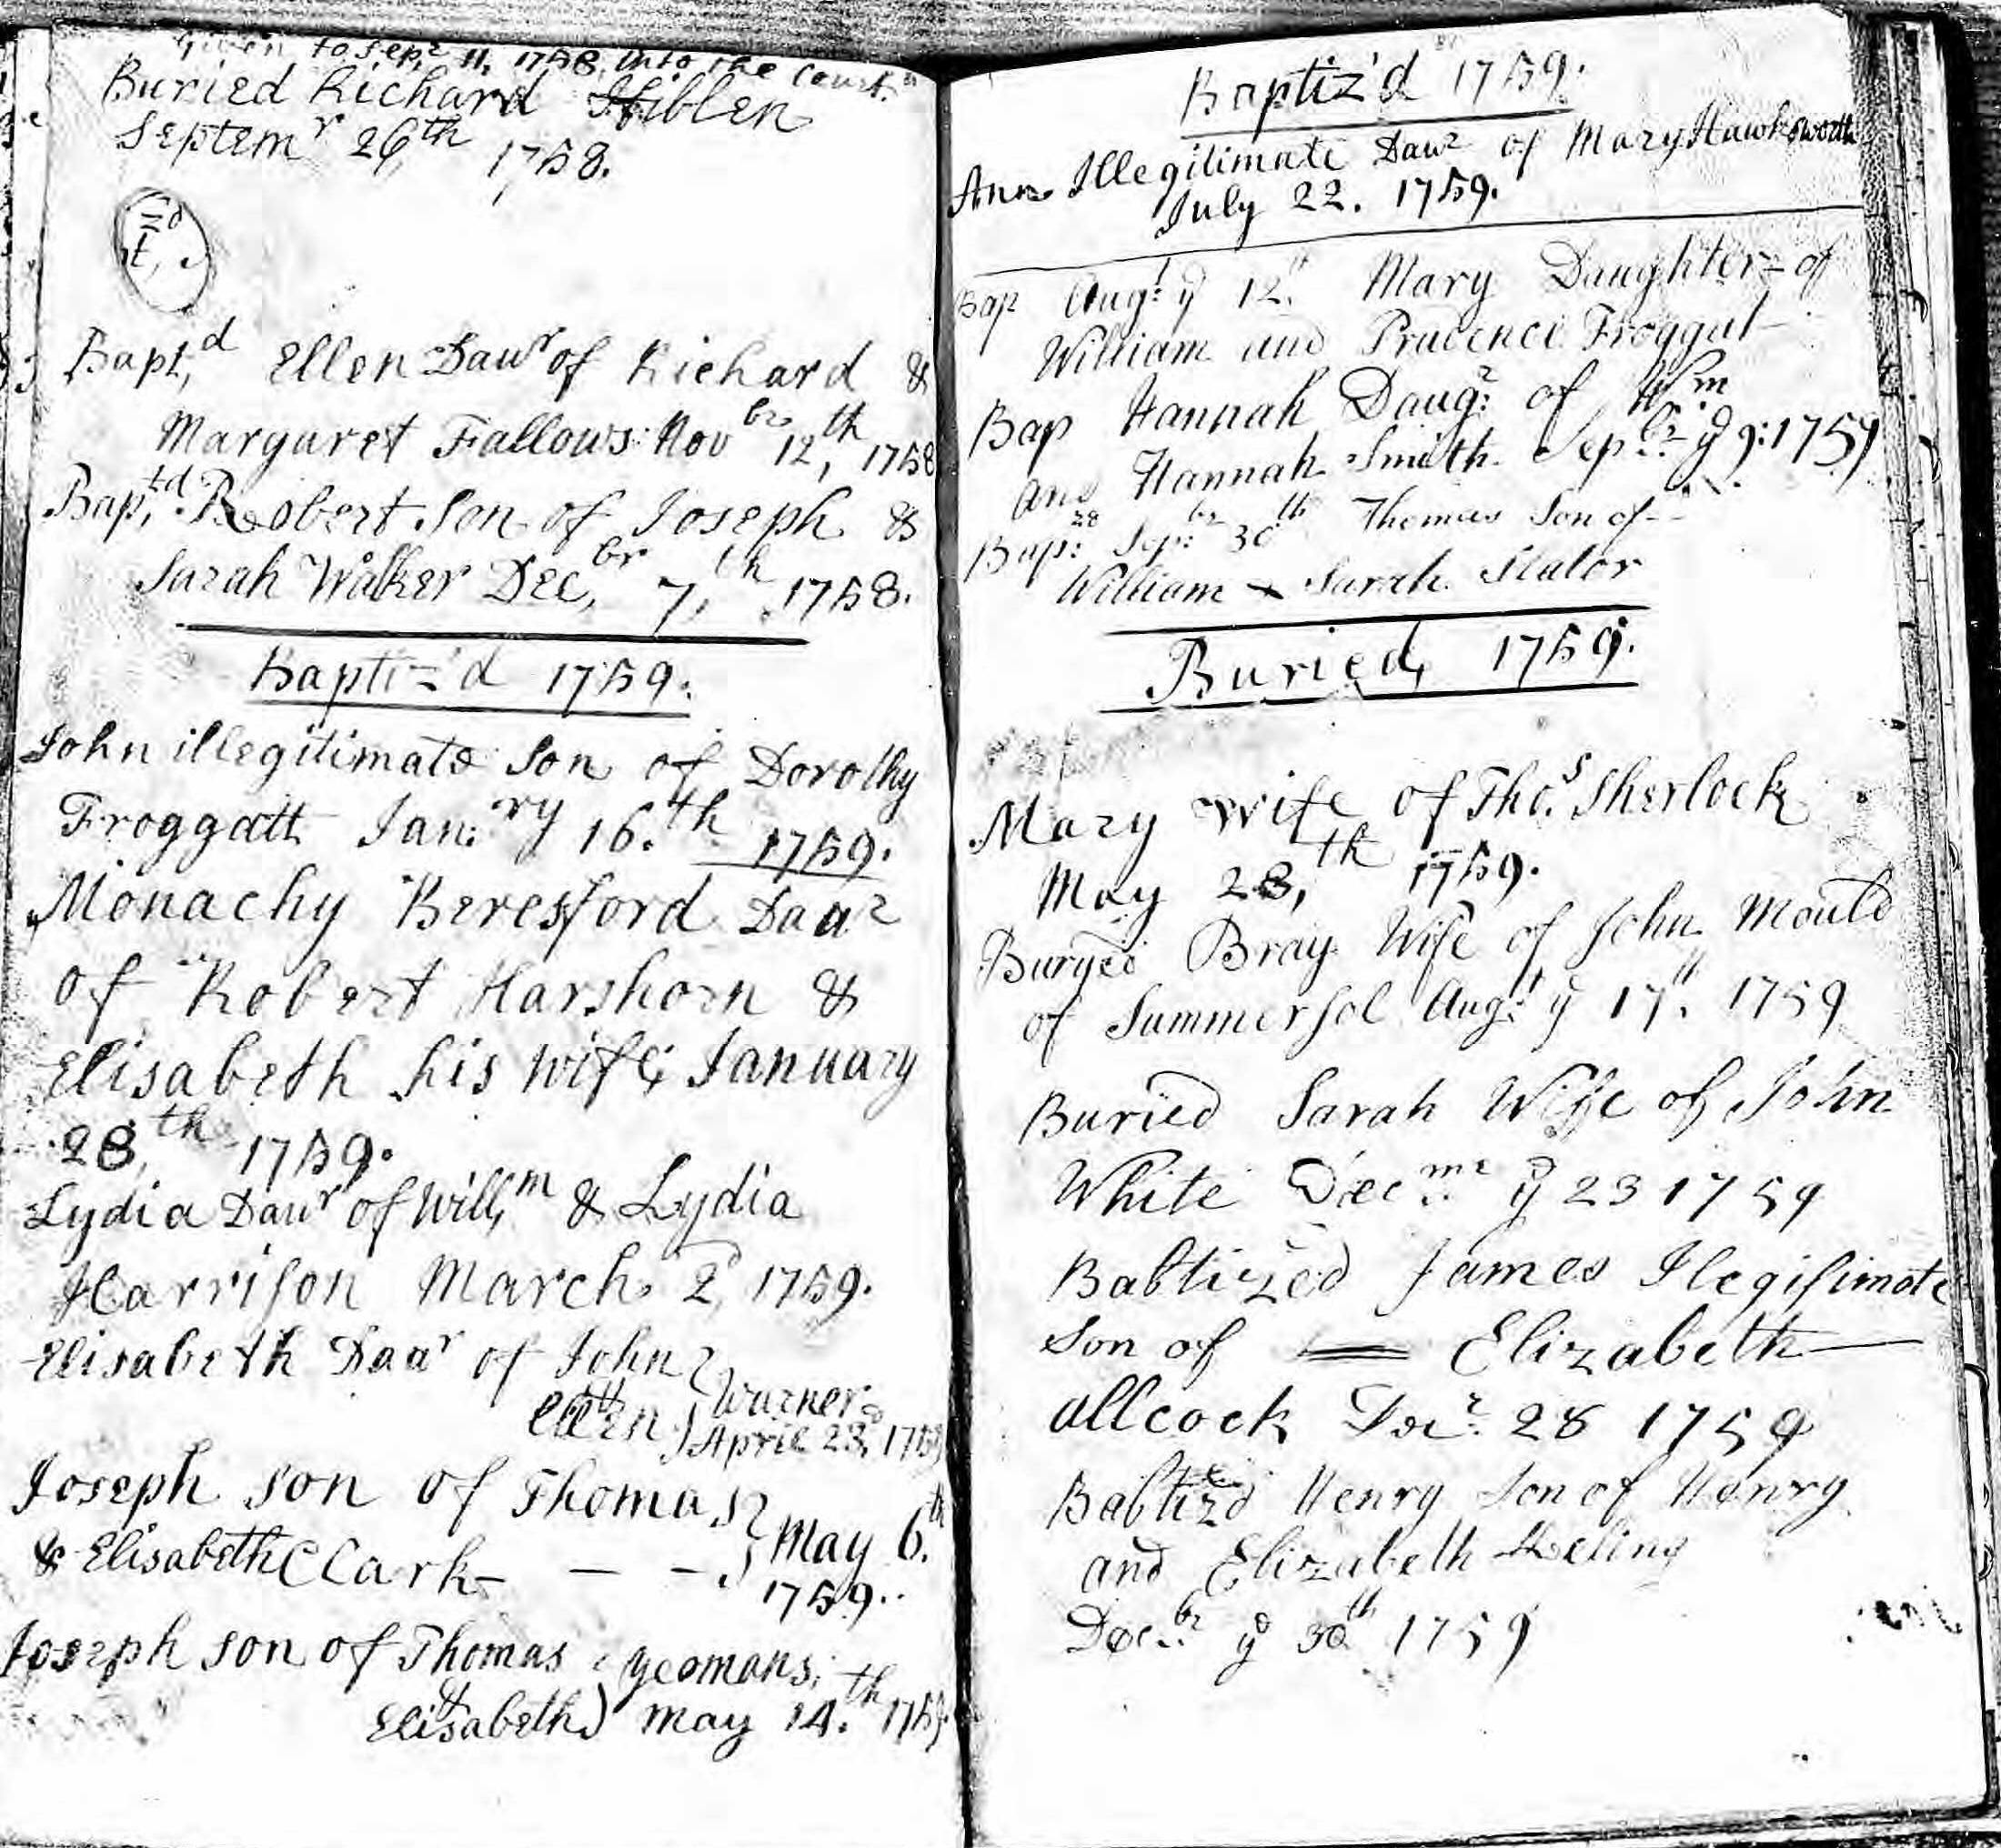 Given to Sepr 11, 1758, Into the Court.
Buried Richard Hiblen
Septemr 26th 1758.
Bapt,d Ellen Dawr of Richard &
Margaret Fallows Novbr 12,th 1758
Bap,td Robert Son of Joseph &
Sarah Walker Decbr, 7,th 1758.
Baptiz'd 1759.
John illegitimate Son of Dorothy
Froggatt Jan:ry 16.th 1759.
Monachy Beresford Dawr
of Robert Harshorn &
Elisabeth his wife, January
28,th 1759.
Lydia Dawr of Will,m & Lydia
Harrison March 2d, 1759.
Elisabeth Dawr of John
& Ellen Warner
April 23, 1759
Joseph son of Thomas
& Elisabeth Clark - - - May 6.th
1759.
Joseph son of Thomas Yeomans,
& Elisabeth May 14.th 1759.
Baptiz'd 1759.
Ann Illegitimate Dawr of Mary Hawksworth
July 22. 1759.
Bap Augt: ye 12th Mary Daughter of
William and Prudence Froggat
Bap Hannah Daugr: of Wm
and Hannah Smith Sepbr: ye 9: 1759
28
Bap: Sep:br 30th Thomas Son of
William & Sarah Slator
Buried, 1759.
Mary wife of Tho.s Sherlock
May 28,th 1759.
Buryed Bray Wife of John Mould
of Summersol Augt: ye 17th. 1759
Buried Sarah Wife of John
White Decmr ye 23 1759
Babtized James Ilegisimate
Son of Elizabeth
Allcock Decr: 28 1759
Babtizd Henry Son of Henry
and Elizabeth Keeling
Decbr: ye 30th 1759